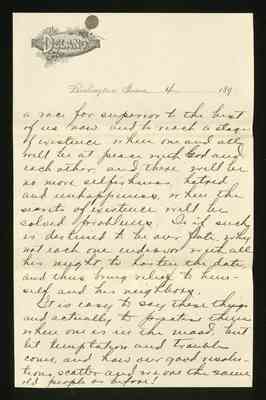 The
DELANO
Burlington, Iowa, 4 189
a race far superior to the best
of us now and to reach a stage
of existence when one and all
will be at peace with God and
each other and there will be
no more selfishness, hatred
and unhappiness, when the
secrets of existence will be
solved problems. If such
is destined to be our fate, why
not each one endeavor with all
his might, to hasten the date,
and thus bring relief to him-
self and his neighbors.
It is easy to say these things
and actually to practice them
when one is in the mood, but
let temptation and trouble
come, and how our good resolu-
tions scatter and we are the same
old people as before!